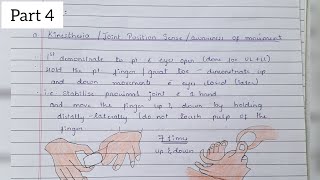 Part 4
a Kinesthesia / Joint Position Sense / awareness of movement
1st demonstrate to pt c eyes open (done for UL & LL)
Hold the pt finger / great toe - demonstrate up
and down movements c eyes closed (later)
i.e Stabilise proximal joint c 1 hand
and move the finger up & down by holding
distally - laterally (do not touch pulp of the
finger
7 times
up & down